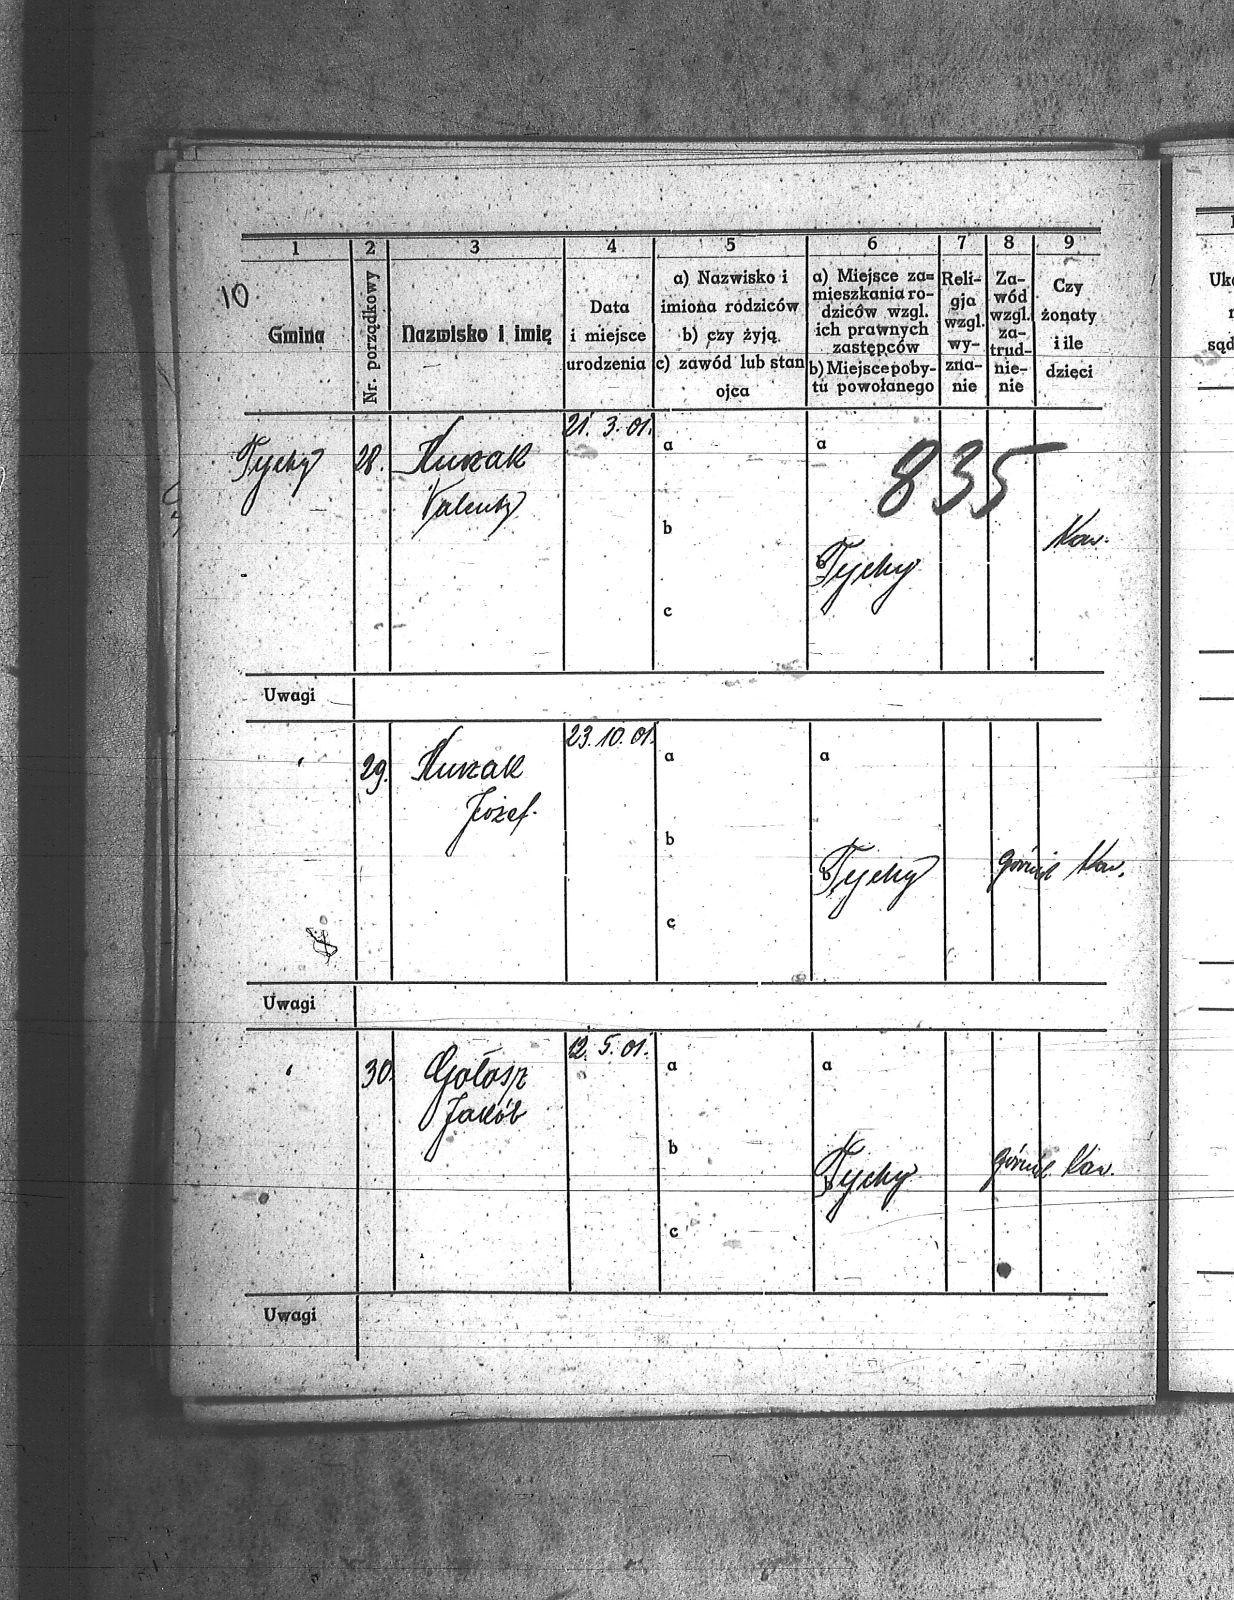 10
1 2 3 4 5 6 7 8 9
Gmina
Nr. porządkowy
Nazwisko i imię
Data
i miejsce
urodzenia
a) Nazwisko i
imiona rodziców
b) czy żyją
c) zawód lub stan
ojca
a) Miejsce za=
mieszkania ro-
dziców wzgl.
ich prawnych
zastępców
b) Miejsce poby-
tu powołanego
Reli-
gja
wzgl.
wy-
zna-
nie
Za-
wód
wzgl.
za-
trud-
nie-
nie
Czy
żonaty
i ile
dzięci
21. 3. 01.
Tychy 28.
a a
835
b
Kaw.
Tychy
c
Uwagi
23. 10. 01.
29.
Józef.
a a
b
Tychy górnik Kaw.
c
Uwagi
12. 5. 01.
30.
Jakób
a a
b
Tychy górnik Kaw.
c
Uwagi
Uk
sąd